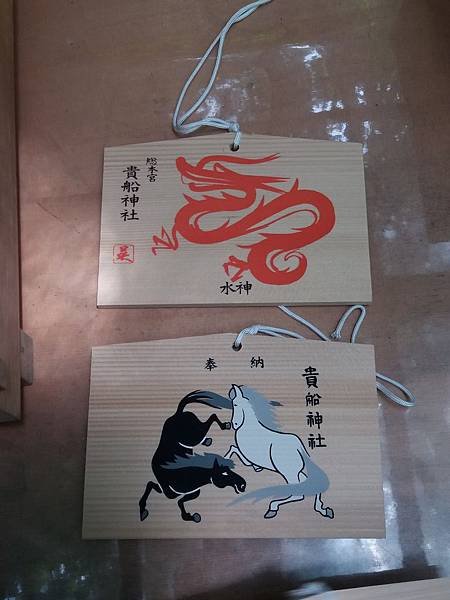 総本宮
貴船神社
水神
奉納
貴船神社